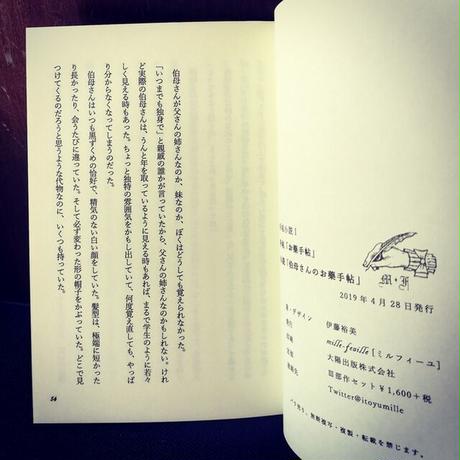 伯母さんが父さんの姉さんなのか、妹なのか、ぼくはどうしても覚えられなかった。
「いつまでも独身で」と親戚の誰かが言っていたから、父さんの姉さんなのかもしれない。けれ
ど実際の伯母さんは、うんと年を取っているように見える時もあれば、まるで学生のように若々
しく見える時もあった。ちょっと独特の雰囲気をかもし出していて、何度覚え直しても、やっぱ
り分からなくなってしまうのだった。
伯母さんはいつも黒ずくめの恰好で、精気のない白い顔をしていた。髪型は、極端に短かった
り長かったり、会うたびに違っていた。そして必ず変わった形の帽子をかぶっていた。どこで見
つけてくるのだろうと思うような代物なのに、いくつも持っていた。
54
「お薬手帖」
「伯母さんのお薬手帖」
2019年4月28日発行
デザイン 伊藤裕美
mille-feuille[ミルフィーユ]
大陽出版株式会社
Ⅲ部作セット¥1,600+税
Twitter@itoyumille
無断複写・複製・転載を禁じます。